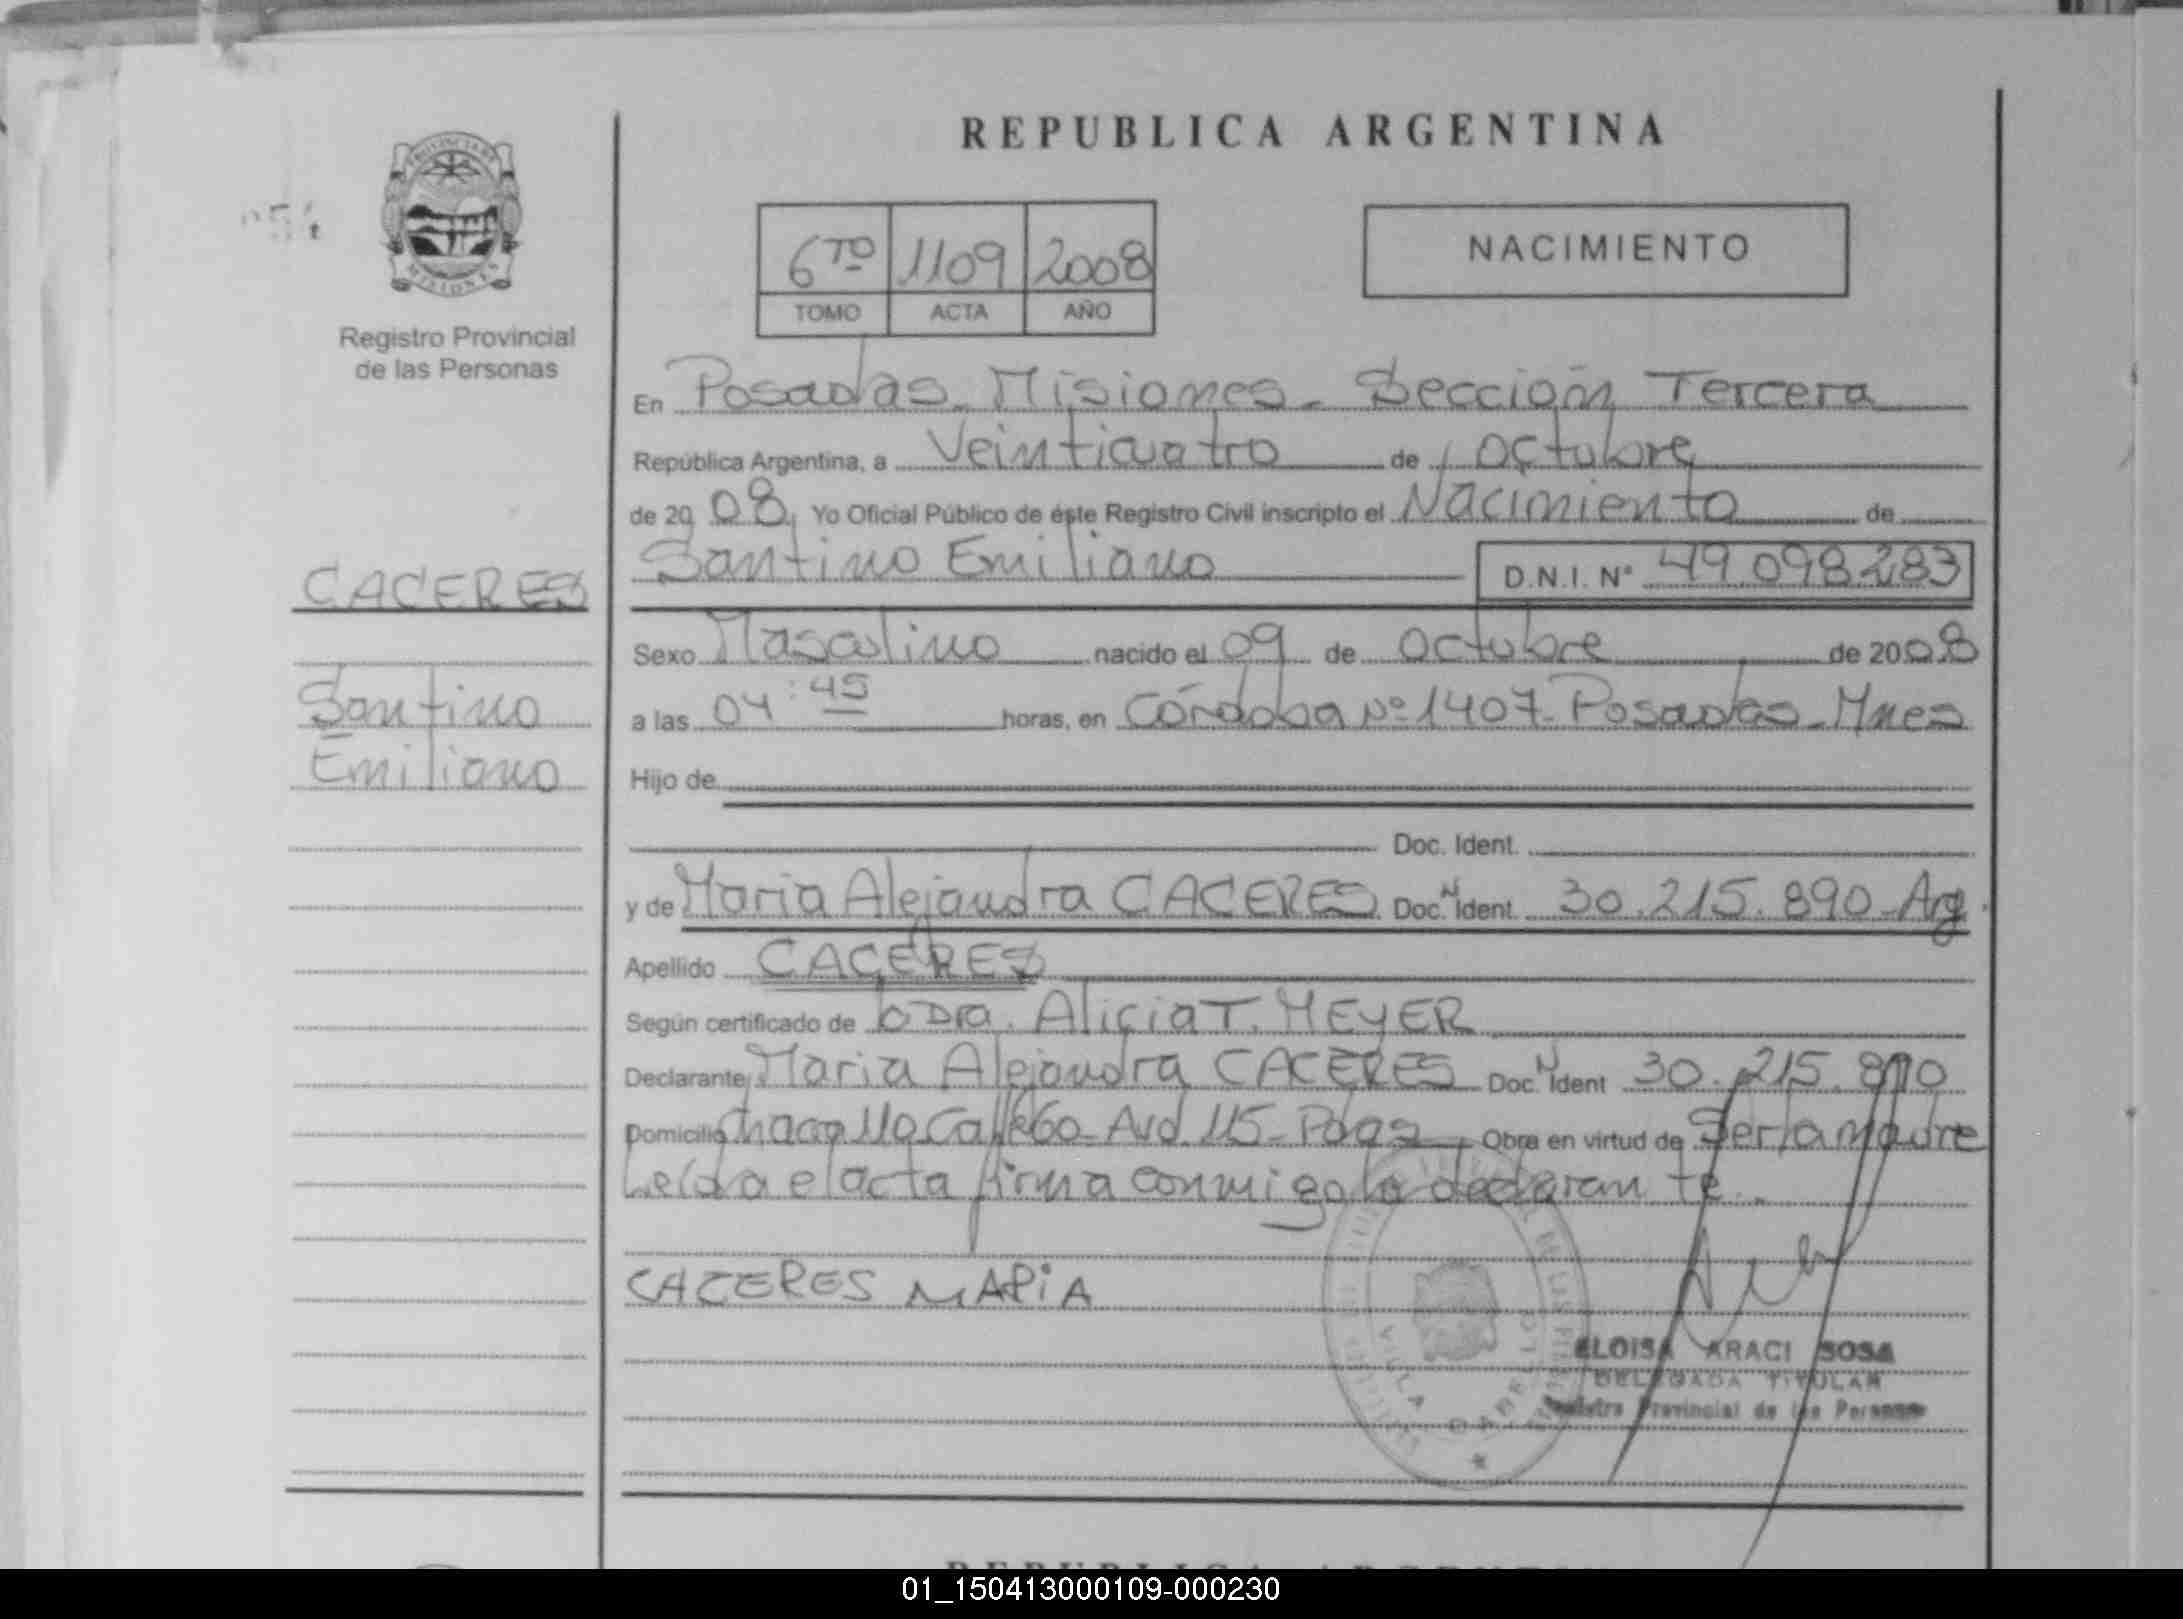 REPUBLICA ARGENTINA
PROVINCIA DE
MISIONES
Registro Provincial
de las Personas
6TO 1109 2008
TOMO ACTA AÑO
NACIMIENTO
En Posadas - Misiones - Sección Tercera
República Argentina, a Veinticuatro de Octubre
de 2008, Yo Oficial Público de éste Registro Civil inscripto el Nacimiento de
Santino Emiliano D.N.I. Nº 49.098.283
CACERES
Santino
Emiliano
Sexo Masculino nacido el 09 de Octubre de 2008
a las 04:45 horas, en Córdoba Nº 1407 - Posadas - Mnes
Hijo de
Doc. Ident.
y de Maria Alejandra CACERES Doc.N Ident. 30.215.890 - Arg.
Apellido CACERES
Según certificado de Dra. Alicia T. MEYER
Declarante Maria Alejandra CACERES Doc.N Ident 30.215.890
Domicilio Chacra 110 Calle 60 - Avd. 115 - Pdas Obra en virtud de Ser la madre
Leída el acta firma conmigo la declarante.
CACERES MARiA
VILLA CABELLO
ELOISA ARACI SOSA
DELEGADA TITULAR
Registro Provincial de las Personas
REPUBLICA ARGENTINA
01_150413000109-000230